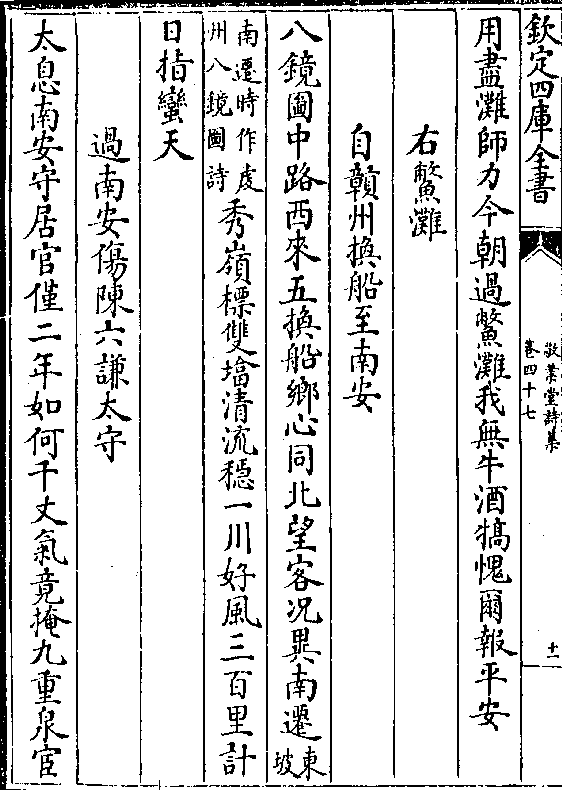 欽定四庫全書
敬業堂詩集
卷四十七
十一
用盡灘師力今朝過鱉灘我無牛酒犒愧爾報平安
右鱉灘
自贛州換船至南安
八鏡圖中路西來五換船鄉心同北望客况異南遷東坡
南遷時作䖍州八鏡圖詩秀嶺標雙塔清流穩一川好風三百里計
日指蠻天
過南安傷陳六謙太守
太息南安守居官僅二年如何千丈氣竟掩九重泉宦